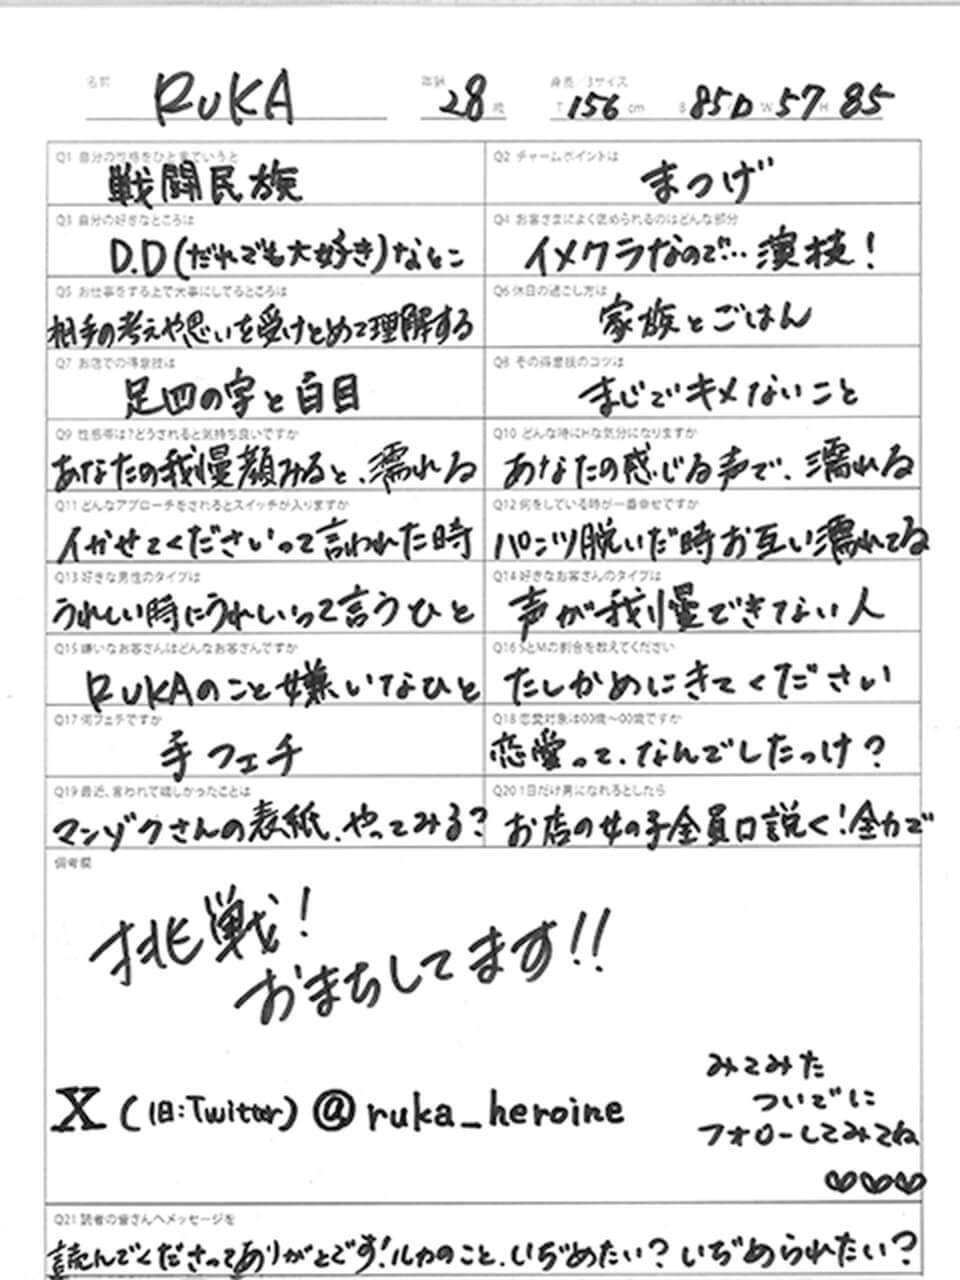 名前 RUKA 年齢 28 歳 身長/3サイズ T 156 cm B 85D W 57 H 85
Q1 自分の性格をひと言でいうと
戦闘民族
Q2 チャームポイントは
まつげ
Q3 自分の好きなところは
D.D(だれでも大好き)なとこ
Q4 お客さまによく褒められるのはどんな部分
イメクラなので…演技!
Q5 お仕事をする上で大事にしてるところは
相手の考えや思いを受けとめて理解する
Q6 休日の過ごし方は
家族とごはん
Q7 お店での得意技は
足四の字と白目
Q8 その得意技のコツは
まじでキメないこと
Q9 性感帯は?どうされると気持ち良いですか
あなたの我慢顔みると、濡れる
Q10 どんな時にHな気分になりますか
あなたの感じる声で、濡れる
Q11 どんなアプローチをされるとスイッチが入りますか
イかせてくださいって言われた時
Q12 何をしている時が一番幸せですか
パンツ脱いだ時お互い濡れてる
Q13 好きな男性のタイプは
うれしい時にうれしいって言うひと
Q14 好きなお客さんのタイプは
声が我慢できてない人
Q15 嫌いなお客さんはどんなお客さんですか
RUKAのこと嫌いなひと
Q16 SとMの割合を教えてください
たしかめにきてください
Q17 何フェチですか
手フェチ
Q18 恋愛対象は00歳～00歳ですか
恋愛って、なんでしたっけ?
Q19 最近、言われて嬉しかったことは
マンゾクさんの表紙、やってみる?
Q20 1日だけ男になれるとしたら
お店の女の子全員口説く!全力で
備考欄
挑戦!
おまちしてます!!
X (旧:Twitter) @ruka_heroine
みてみた
ついでに
フォローしてみてね
♡♡♡
Q21 読者の皆さんへメッセージを
読んでくださってありがとです!ルカのこと、いぢめたい?いぢめられたい?